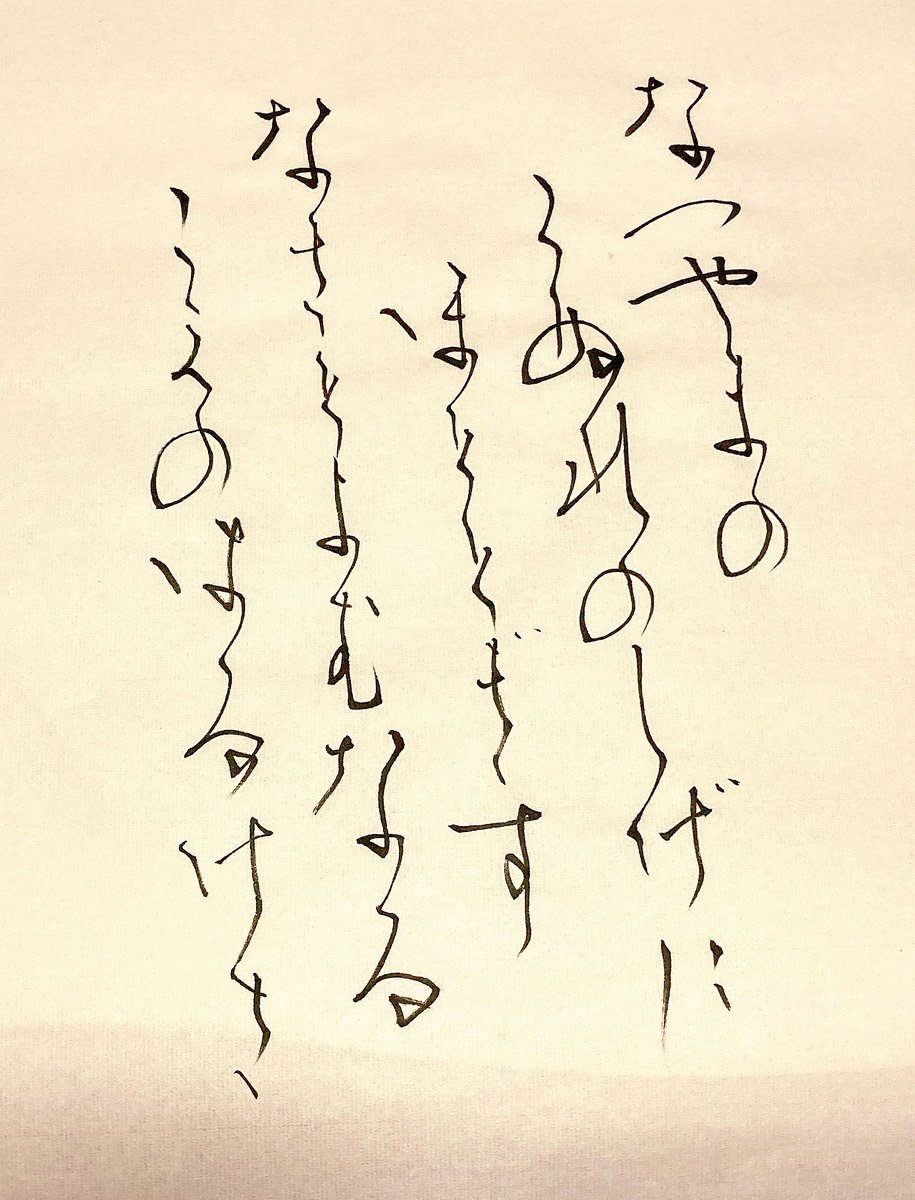 なつやまの
こぬれのしげに
ほととぎす
なきとよむなる
こえのはるけさ